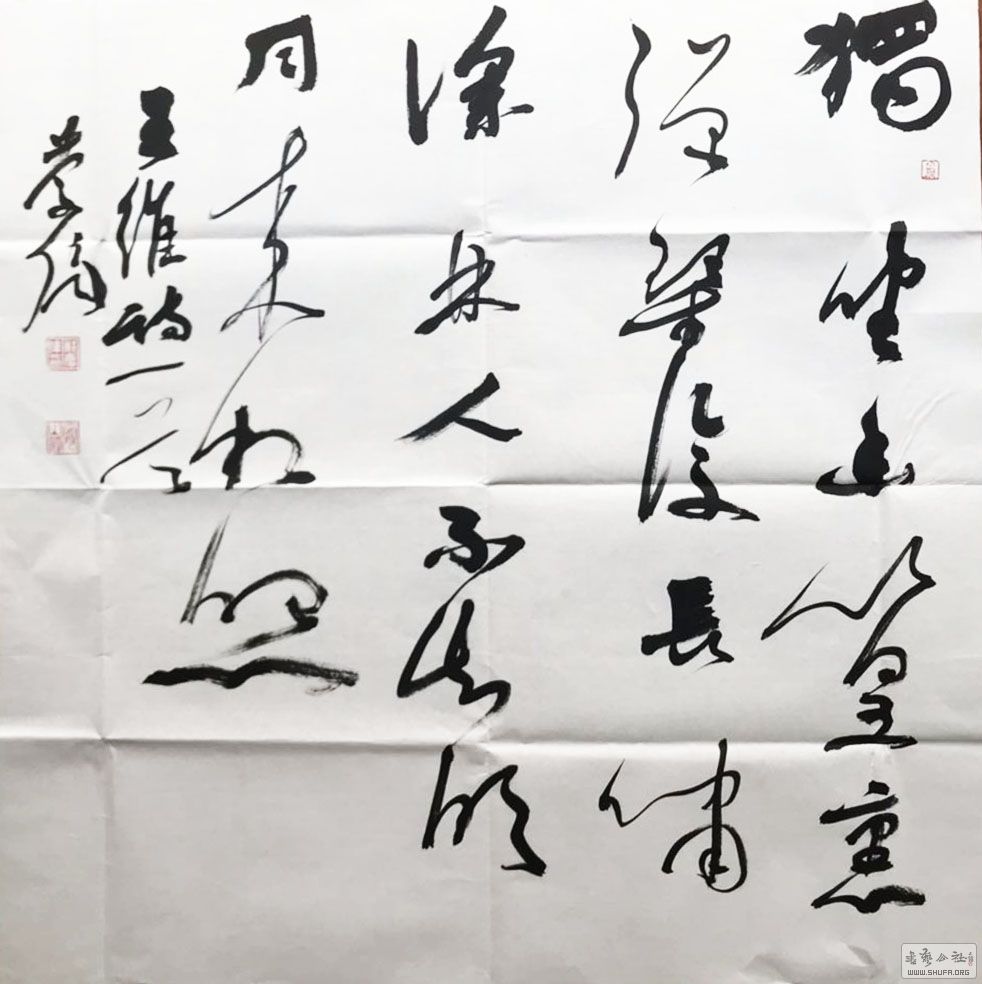 獨坐幽篁裏
彈琴復長嘯
深林人不知明
月來相照
王維詩一首
書藝公社
WWW.SHUFA.ORG